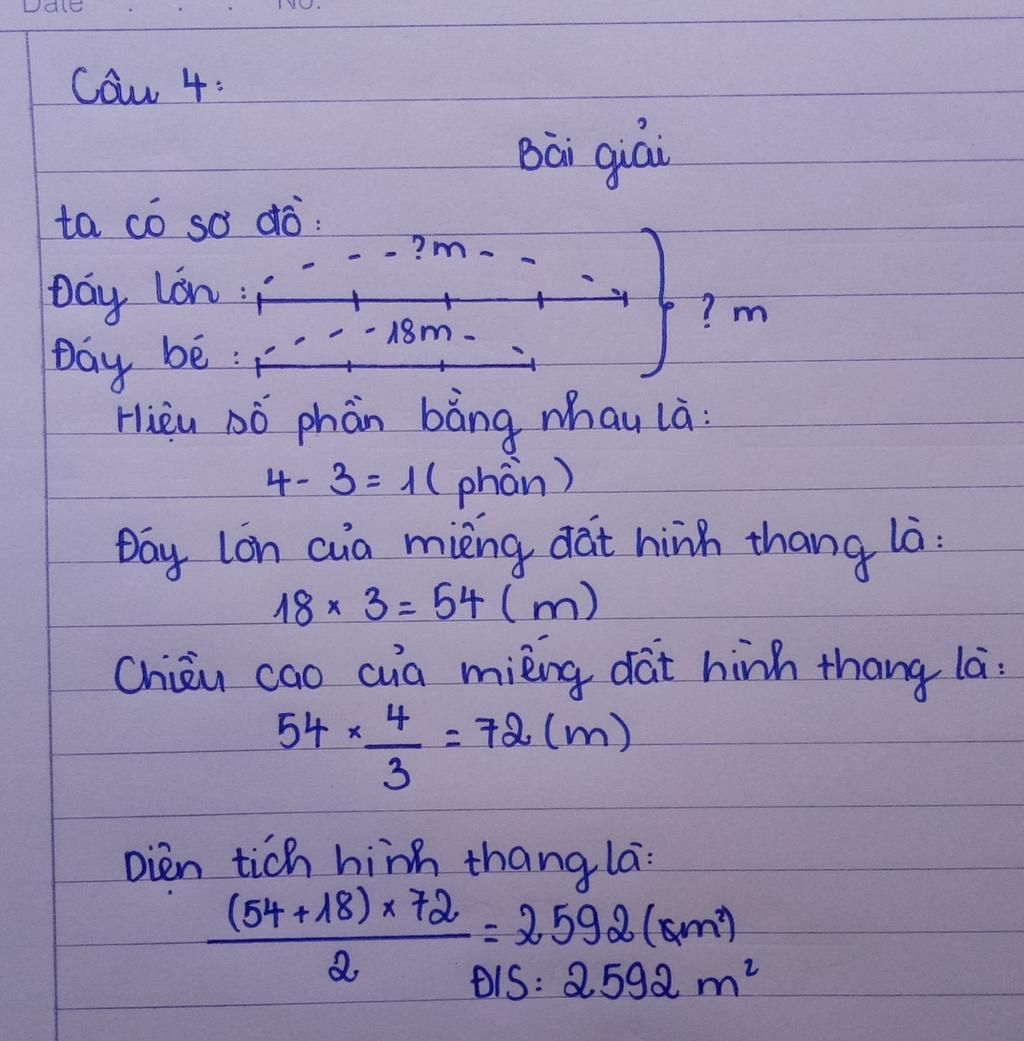 Date . . . No.
Câu 4:
Bài giải
ta có sơ đồ:
?m
Đáy lớn :
? m
18m
Đáy bé :
Hiệu số phần bằng nhau là:
4 - 3 = 1 ( phần )
Đáy lớn của miếng đất hình thang là:
18 × 3 = 54 ( m )
Chiều cao của miếng đất hình thang là:
54 × 4/3 = 72 ( m )
Diện tích hình thang là:
(54 + 18) × 72 / 2 = 2592 (m²)
Đ/S: 2592 m²